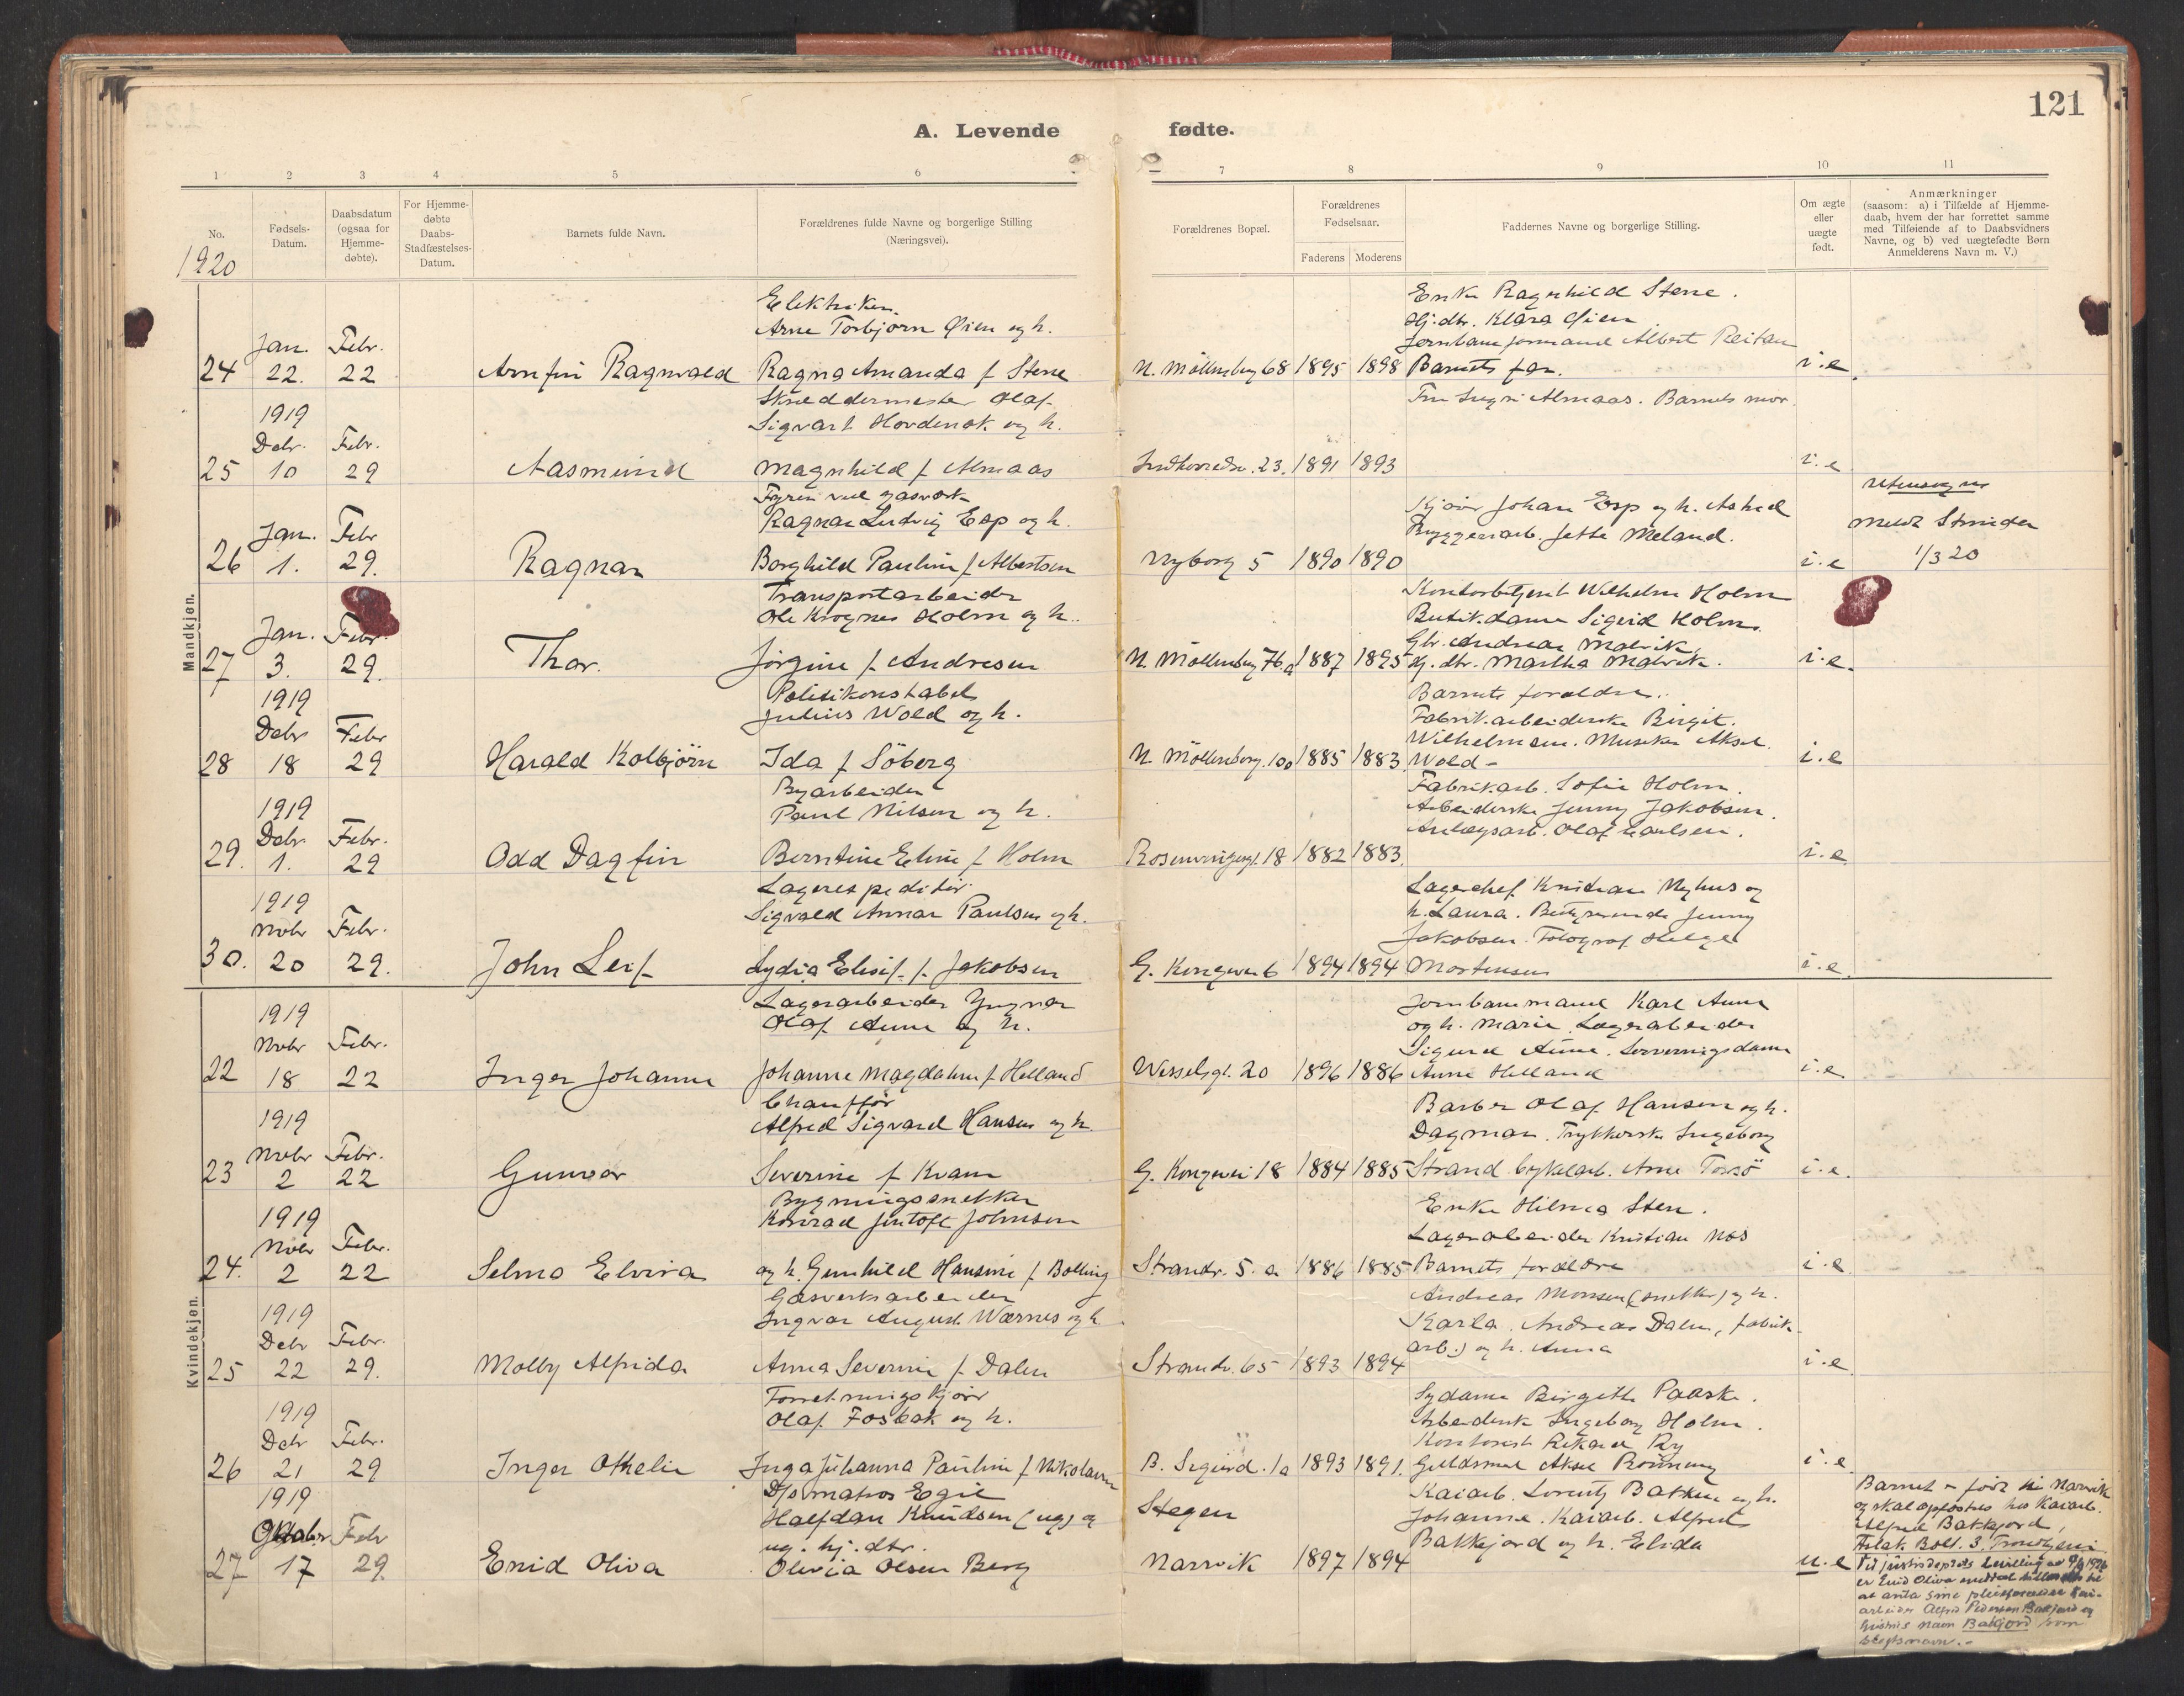 121
A. Levende fødte.
1 2 3 4 5 6 7 8 9 10 11
No.
Fødsels-
Datum.
Daabsdatum
(ogsaa for
Hjemme-
døbte).
For Hjemme-
døbte
Daabs-
Stadfæstelses-
Datum.
Barnets fulde Navn.
Forældrenes fulde Navne og borgerlige Stilling
(Næringsvei).
Forældrenes Bopæl.
Forældrenes
Fødselsaar.
Faderens Moderens
Faddernes Navne og borgerlige Stilling.
Om ægte
eller
uægte
født.
Anmærkninger
(saasom: a) i Tilfælde af Hjemme-
daab, hvem der har forrettet samme
med Tilføiende af to Daabsvidners
Navne, og b) ved uægtefødte Børn
Anmelderens Navn m. V.)
1920
Mandkjøn.
Elektriker
Arne Torbjørn Øien og h.
Enke Ragnhild Stene.
Hj.dtr. Klara Øien
Jernbaneformand Albert Reitan
Jan. Febr.
24 22. 22 Arnfin Ragnvald Ragna Amanda f Stene N. Möllenberg 68 1895 1898 Barnets far. i.e.
Skreddermester Olaf
Sigvart Hovdenak og h.
Fru Almaas. Barnets mor.
1919
Debr. Febr.
25 10 29 Aasmund Magnhild f Almaas 23. 1891 1893 i.e
Fyrbø ved gasverk
Ragnar Ludvig Esp og h.
Kjører Johan Esp og h. Astrid
Byggeriarb. Jette Meland.
utensogns
meldt Strinden
1/3 20
Jan. Febr
26 1. 29. Ragnar Borghild Pauline f Albertsen Nyborg 5 1890 1890 i.e
Transportarbeider
Ole Krognes Holm og h.
Kontorbetjent Wilhelm Holm
Butikdame Sigrid Holm.
Gbr. Andreas Malvik,
Jan. Febr.
27 3. 29. Thor. Jörgine f Andresen N. Möllenberg 76a 1887 1895 Hj. dtr. Martha Malvik. i.e.
Politikonstabel
Julius Wold og h.
Barnets foreldre.
Fabrikarbeiderske Birgit
Wilhelmsen. Musiker Aksel
1919
Debr Febr
28 18 29 Harald Kolbjörn Ida f Söberg N. Möllenberg. 100 1885 1883 Wold - i.e
Byarbeider
Paul Nilsen og h.
Fabrikarb. Sofie Holm.
Arbeiderske Jenny Jakobsen.
Anlægsarb. Olaf Karlsen.
1919
Debr. Febr.
29. 1. 29 Odd Dagfin Berntine Eline f Holm Rosenvingesgt. 18 1882 1883. i.e.
Lagerexpeditør
Sigvald Annar Paulsen og h.
Lagerchef Kristian Nyhus og
h. Laura. Bestyrerinde Jenny
Jakobsen. Fotograf Helge
1919
Novbr Febr.
30. 20 29. John Leif Lydia Elisif f. Jakobsen G. Kongevei 6 1894 1894 Mortensen i.e.
Kvindekjøn.
Lagerarbeider Yngvar
Olaf Aune og h.
Jernbanemand Karl Aune
og h. Marie. Lagerarbeider
Sigurd Aune. Serveringsdame
1919
Novbr Febr.
22 18 22 Inger Johanne Johanne Magdalene f Helland Wesselsgt. 20 1896 1886 Anne Helland i.e.
Chauffør
Alfred Sigvard Hansen og h.
Barber Olaf Hansen og h.
Dagmar. Trykkerske Ingeborg
1919
Novbr Febr.
23 2 22 Gunvor Severine f Kvam G. Kongevei 18 1884 1885 Strand. Cykelarb. Arne Torsö i.e.
Bygningssnekker
Konrad Jentoft Johnsen
Enke Hilma Sten.
Lagerarbeider Kristian Nos
1919
Novbr Febr.
24. 2 22 Selma Elvira og h. Gunhild Hansine f Bolling Strandv. 5. a 1886 1885 Barnets foreldre i.e
Gasverksarbeider
Ingvar August Wærnes og h
Andreas Monsen (snekker) og h.
Karla. Andreas Dalen, fabrik-
arb.) og h. Anna
1919
Debr Febr.
25 22 29. Molly Alfrida Anna Severine f Dalen Strandv. 65 1893 1894 i.e
Forretningskjører
Olaf Fosbak og h.
Sydame Birgitte Paaske.
Arbeiderske Ingeborg Holm.
Kontorist Rikard Ry
1919
Debr Febr.
26 21 29 Inger Othelie Inga Johanna Pauline f Nikolaisen B. Sigurd. 1a 1893 1891. Guldsmed Aksel Rönning i.e
D/s matros Egil
Halfdan Knudsen (ug) og
ug. hj. dtr.
Stegen
Kaiarb. Lorentz Bakken og h.
Johanne. Kaiarb. Alfred
Bakkjord og h. Elida
1919
Oktobr Febr
27 17 29. Enid Oliva Olivia Olsen Berg Narvik 1897 1894 u.e
Barnet er født i Narvik
og skal opfostres hos Kaiarb.
Alfred Bakkjord,
Aslak Bolt. 3, Trondhjem
Til justisdeptets bevilling av 9/6 1926
er Enid Oliva meddelt tillatelse til
at anta sine pleieforældre Kai-
arbeider Alfred Pedersen Bakkjord og
hustrus navn Bakkjord som
slegtsnavn. -